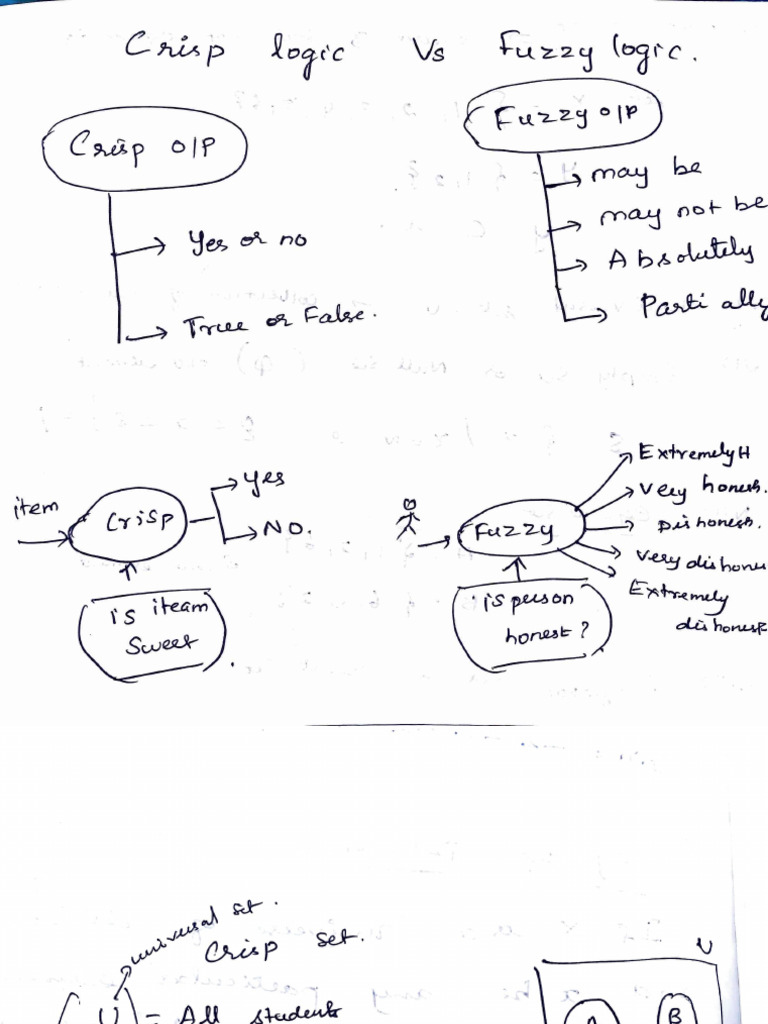 Crisp logic Vs Fuzzy logic.
Crisp O/P
Yes or no
True or False.
Fuzzy O/P
may be
may not be
Absolutely
Partially
item
Crisp
Yes
NO.
is iteam
Sweet
Fuzzy
Extremely H
Very honest.
Dishonest.
Very dishone
Extremely
dishonest
is person
honest?
universal set.
Crisp set.
U = All students
U
A
B